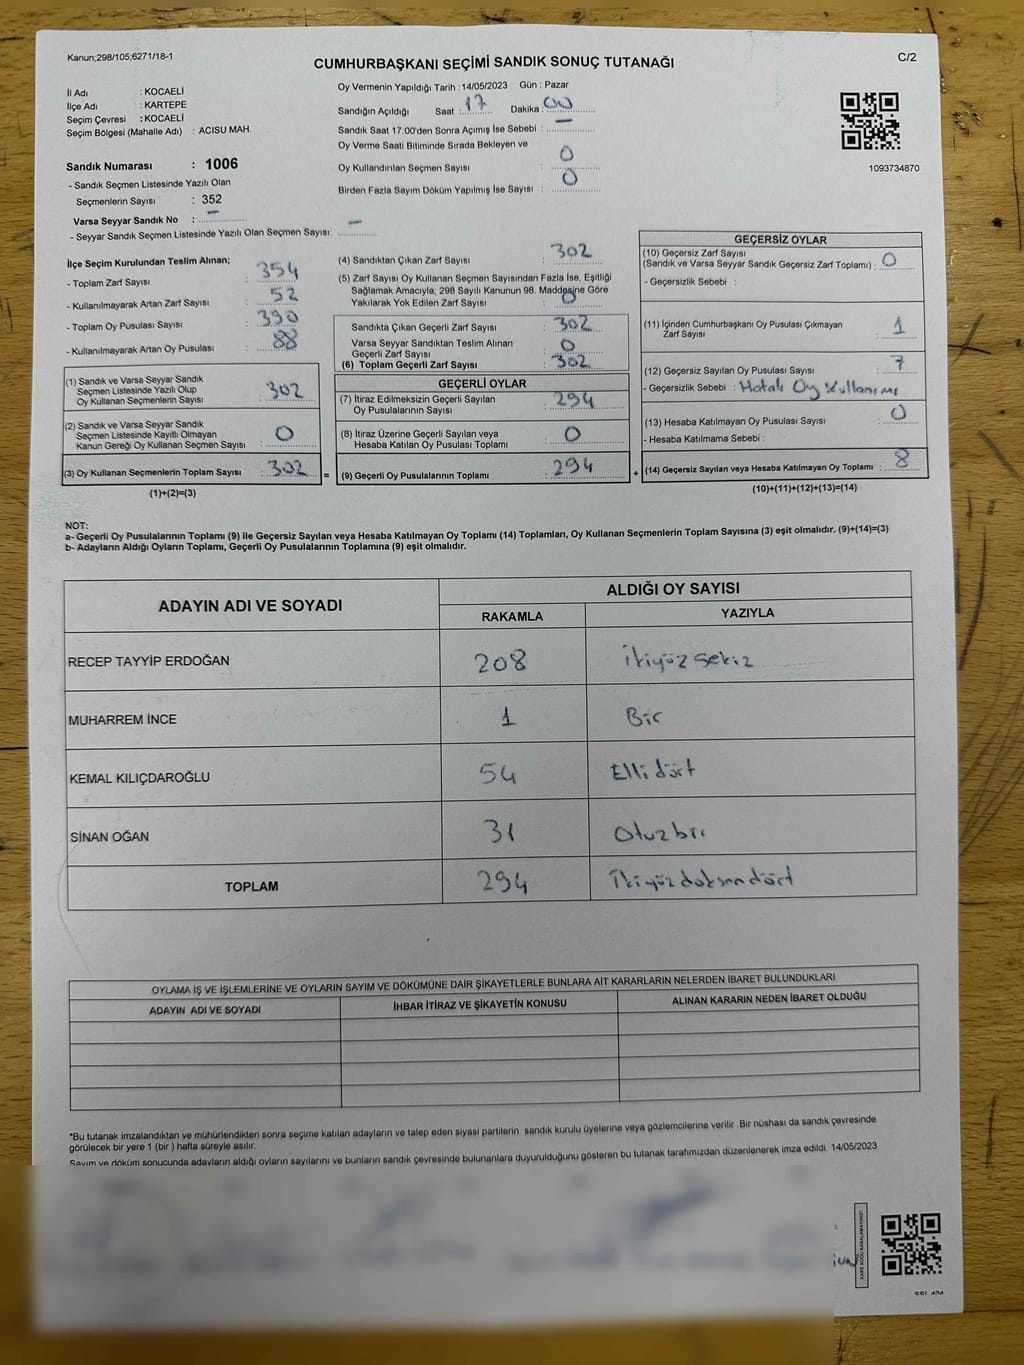 Kanun;298/105;6271/18-1
C/2
CUMHURBAŞKANI SEÇİMİ SANDIK SONUÇ TUTANAĞI
İl Adı : KOCAELİ
İlçe Adı : KARTEPE
Seçim Çevresi : KOCAELİ
Seçim Bölgesi (Mahalle Adı) : ACISU MAH.
Sandık Numarası : 1006
- Sandık Seçmen Listesinde Yazılı Olan
Seçmenlerin Sayısı : 352
Varsa Seyyar Sandık No : -
- Seyyar Sandık Seçmen Listesinde Yazılı Olan Seçmen Sayısı: -
Oy Vermenin Yapıldığı Tarih : 14/05/2023 Gün : Pazar
Sandığın Açıldığı Saat : 17 Dakika : 00
Sandık Saat 17:00'den Sonra Açımış İse Sebebi : -
Oy Verme Saati Bitiminde Sırada Bekleyen ve
Oy Kullandırılan Seçmen Sayısı : 0
Birden Fazla Sayım Döküm Yapılmış İse Sayısı : 0
1093734870
İlçe Seçim Kurulundan Teslim Alınan;
- Toplam Zarf Sayısı : 354
- Kullanılmayarak Artan Zarf Sayısı : 52
- Toplam Oy Pusulası Sayısı : 390
- Kullanılmayarak Artan Oy Pusulası : 88
(1) Sandık ve Varsa Seyyar Sandık
Seçmen Listesinde Yazılı Olup
Oy Kullanan Seçmenlerin Sayısı : 302
(2) Sandık ve Varsa Seyyar Sandık
Seçmen Listesinde Kayıtlı Olmayan
Kanun Gereği Oy Kullanan Seçmen Sayısı : 0
(3) Oy Kullanan Seçmenlerin Toplam Sayısı : 302
(1)+(2)=(3)
=
(4) Sandıktan Çıkan Zarf Sayısı : 302
(5) Zarf Sayısı Oy Kullanan Seçmen Sayısından Fazla İse, Eşitliği
Sağlamak Amacıyla, 298 Sayılı Kanunun 98. Maddesine Göre
Yakılarak Yok Edilen Zarf Sayısı : 0
Sandıkta Çıkan Geçerli Zarf Sayısı : 302
Varsa Seyyar Sandıktan Teslim Alınan
Geçerli Zarf Sayısı : 0
(6) Toplam Geçerli Zarf Sayısı : 302
GEÇERLİ OYLAR
(7) İtiraz Edilmeksizin Geçerli Sayılan
Oy Pusulalarının Sayısı : 294
(8) İtiraz Üzerine Geçerli Sayılan veya
Hesaba Katılan Oy Pusulası Toplamı : 0
(9) Geçerli Oy Pusulalarının Toplamı : 294
+
GEÇERSİZ OYLAR
(10) Geçersiz Zarf Sayısı
(Sandık ve Varsa Seyyar Sandık Geçersiz Zarf Toplamı) : 0
- Geçersizlik Sebebi :
(11) İçinden Cumhurbaşkanı Oy Pusulası Çıkmayan
Zarf Sayısı : 1
(12) Geçersiz Sayılan Oy Pusulası Sayısı : 7
- Geçersizlik Sebebi : Hatalı Oy Kullanımı
(13) Hesaba Katılmayan Oy Pusulası Sayısı : 0
- Hesaba Katılmama Sebebi :
(14) Geçersiz Sayılan veya Hesaba Katılmayan Oy Toplamı : 8
(10)+(11)+(12)+(13)=(14)
NOT:
a- Geçerli Oy Pusulalarının Toplamı (9) ile Geçersiz Sayılan veya Hesaba Katılmayan Oy Toplamı (14) Toplamları, Oy Kullanan Seçmenlerin Toplam Sayısına (3) eşit olmalıdır. (9)+(14)=(3)
b- Adayların Aldığı Oyların Toplamı, Geçerli Oy Pusulalarının Toplamına (9) eşit olmalıdır.
ADAYIN ADI VE SOYADI ALDIĞI OY SAYISI
RAKAMLA YAZIYLA
RECEP TAYYİP ERDOĞAN 208 İkiyüzsekiz
MUHARREM İNCE 1 Bir
KEMAL KILIÇDAROĞLU 54 Elli dört
SİNAN OĞAN 31 Otuzbir
TOPLAM 294 İkiyüzdoksandört
OYLAMA İŞ VE İŞLEMLERİNE VE OYLARIN SAYIM VE DÖKÜMÜNE DAİR ŞİKAYETLERLE BUNLARA AİT KARARLARIN NELERDEN İBARET BULUNDUKLARI
ADAYIN ADI VE SOYADI İHBAR İTİRAZ VE ŞİKAYETİN KONUSU ALINAN KARARIN NEDEN İBARET OLDUĞU
*Bu tutanak imzalandıktan ve mühürlendikten sonra seçime katılan adayların ve talep eden siyasi partilerin sandık kurulu üyelerine veya gözlemcilerine verilir. Bir nüshası da sandık çevresinde
görülecek bir yere 1 (bir ) hafta süreyle asılır.
Sayım ve döküm sonucunda adayların aldığı oyların sayılarını ve bunların sandık çevresinde bulunanlara duyurulduğunu gösteren bu tutanak tarafımızdan düzenlenerek imza edildi. 14/05/2023
KARE KODU KARALAMAYINIZ!